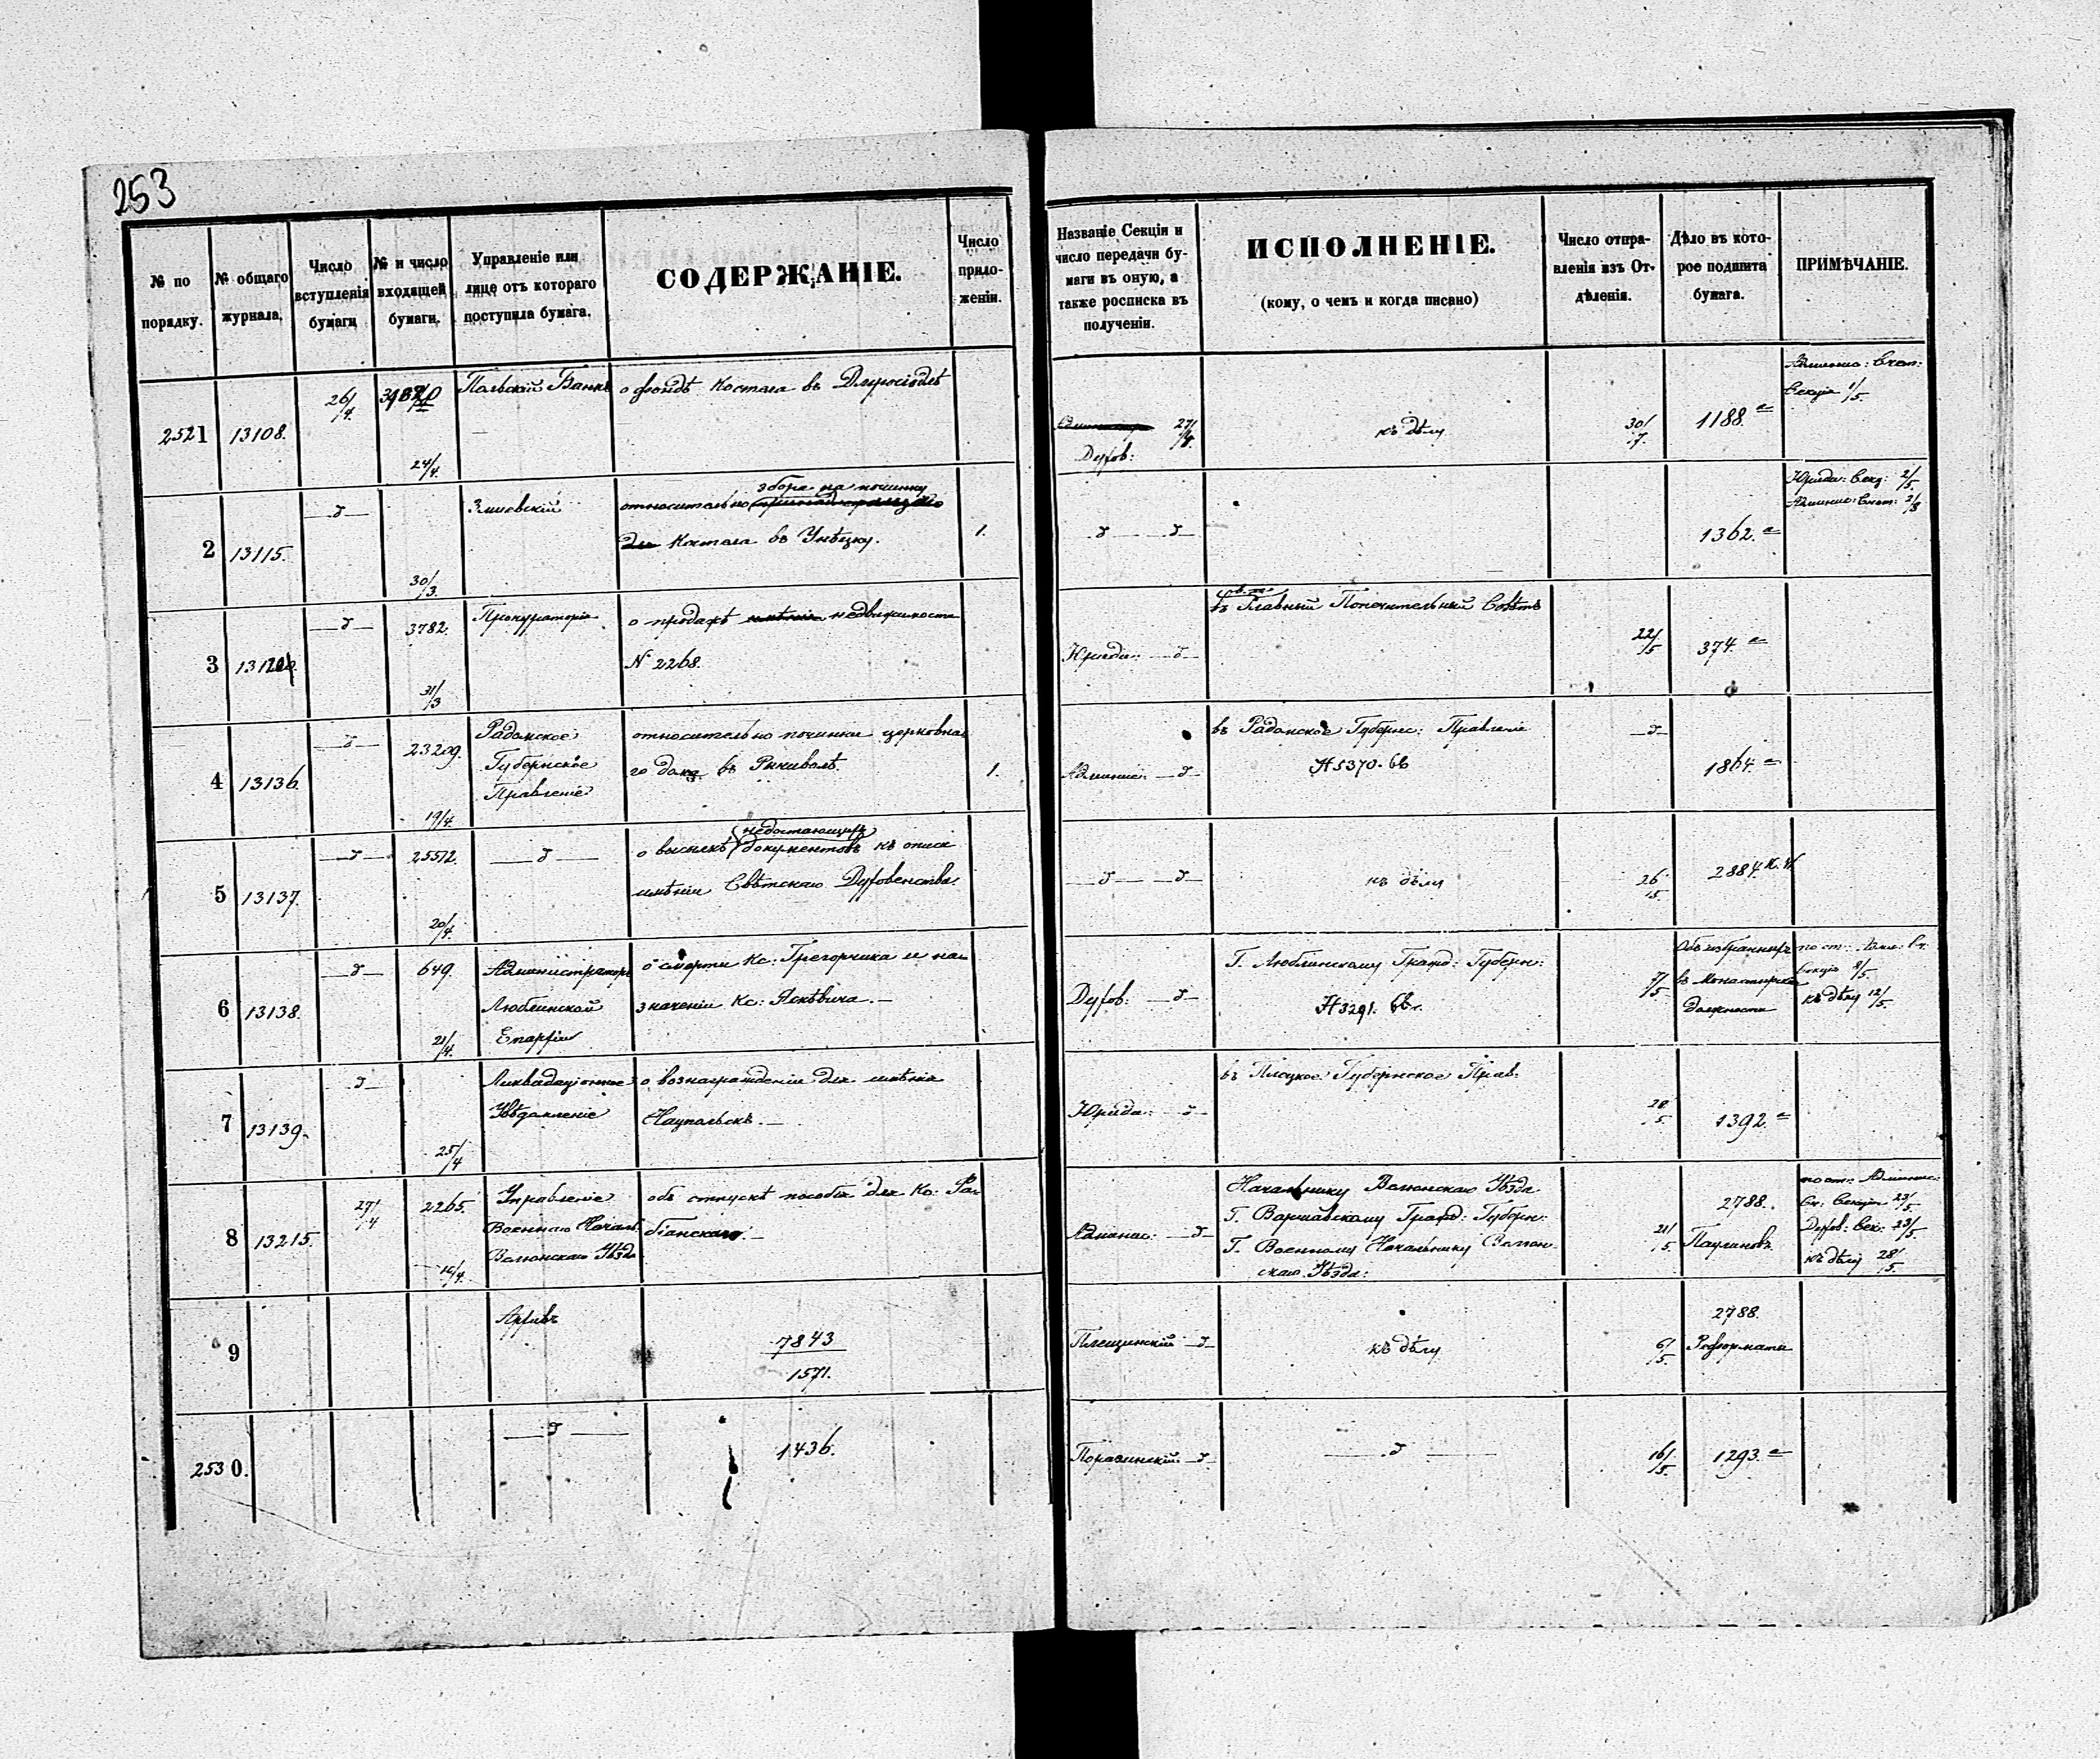 253
№ по порядку.
№ общаго журнала.
Число вступленія бумаги
№ и число входящей бумаги.
Управленіе или лице отъ котораго поступила бумага.
СОДЕРЖАНІЕ.
Число приложеніи.
Названіе Секціи и число передачи бумаги въ оную, а также росписка въ полученіи.
ИСПОЛНЕНІЕ.
(кому, о чемъ и когда писано)
Число отправленія изъ Отдѣленія.
Дѣло въ которое подшита бумага.
ПРИМѢЧАНІЕ.
2521 13108. 26/4 24/4 Польскій Банкъ о фондѣ костела въ
Духов: 27/4 къ дѣлу 30/7 1188.
Секція 1/5.
2 13115. д 30/3
относительно сбора на починку
костела въ
1.
д д 1362.
Юрид: Секц: 2/5
3 д 3782. 31/3 Прокураторія о продажѣ недвижимости
N 2268.
Юрид: д въ Главный Попечительный Совѣтъ 22/5 374.
4 13136. д 23209. 19/4
Радомское
Губернское
Правленіе
относительно починки церковна
го дома въ
1.
Админис: д въ Радомское Губернс: Правленіе
N 5370.
д 1864.
5 13137. д 25512. 20/4 д
о высылкѣ недостающихъ документовъ къ описи
имѣнія Свѣтскаго Духовенства.
д д къ дѣлу 26/5. 2884.
6 13138. д 649. 21/4.
Администраторъ
Люблинской
Епархіи
о смерти Кс: Грегорчика и на
значеніи Кс:
Духов: д Г. Люблинскому Гражд: Губерн:
N 3291.
7/5
Объ избранныхъ
въ монастырскія
должности
Секція 8/5.
къ дѣлу 12/5.
7 13139. д 25/4
Ликвидаціонное
Увѣдомленіе
о вознагражденіи для имѣнія
Юрид: д въ Плоцкое Губернское Прав. 28/5. 1392.
8 13215. 27/4 2265. 16/4.
Управленіе
Военнаго Началь.
Велюнскаго Уѣзда
объ отпускѣ пособія для Кс: Фа
біанскаго.
Админис: д
Начальнику Велюнскаго Уѣзда
Г. Варшавскому Гражд: Губерн:
Г. Военному Начальнику Велюн
скаго Уѣзда:
21/5.
2788.
Паулиновъ.
по от: Админис:
Секція 23/5.
Духов: Сек: 23/5.
къ дѣлу 28/5.
9 Архивъ
7843
1571.
Плещинскій д къ дѣлу 6/5.
2788.
Реформати
2530. д 1436.
д д 16/5. 1293.